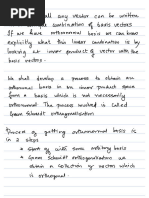 all vector can be written
the combination of basis vectors.
If we have orthonormal basis we can know
explicitly what this linear combination is by
looking at inner product of vector with the
basis vectors.
We shall develop a process to obtain an
orthonormal basis in an inner product space
from a basis which is not necessarily
orthonormal. The process method is called
Gram Schmidt orthogonalisation
Process of getting orthonormal basis is
in 2 steps
Start off with some arbitrary basis
Gram Schmidt orthogonalisation we
obtain a collection of vector which
is orthogonal.